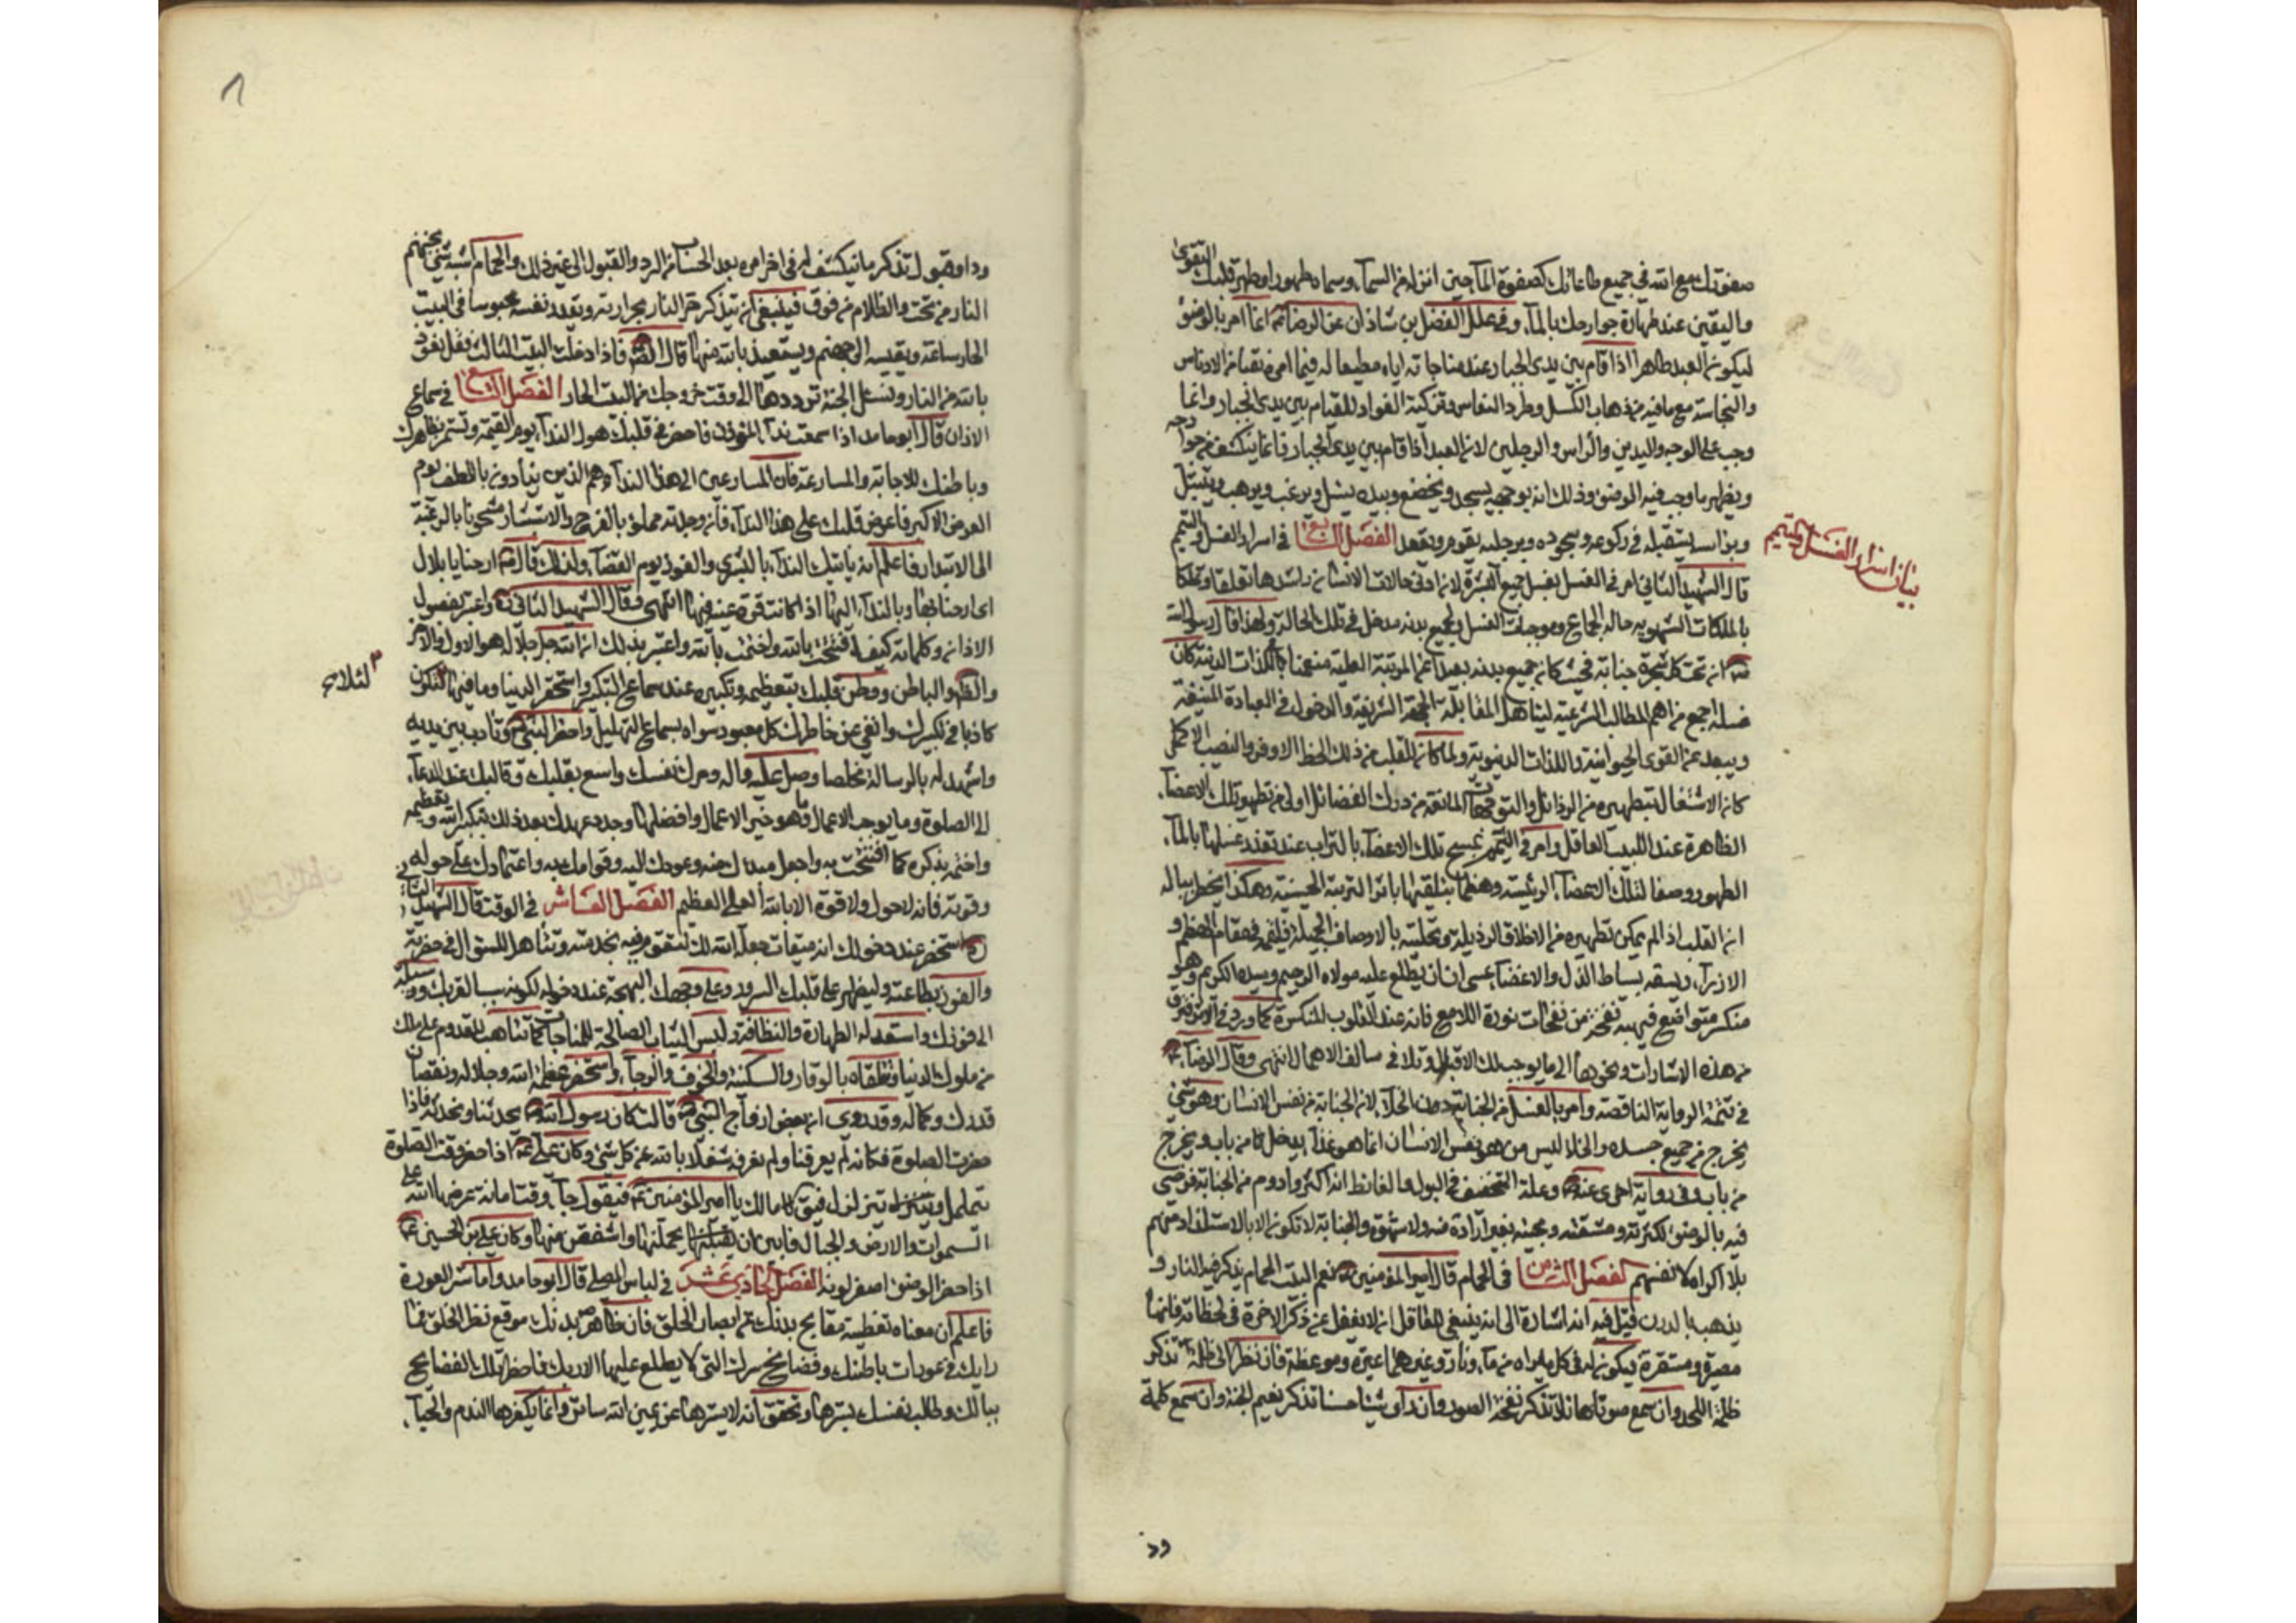 صفوتك مع الله في جميع طاعاتك كصفوة الماء حين انزله من السماء وسماه طهورا وطهر قلبك بالتقوى
واليقين عند طهارة جوارحك بالماء وفي علل الفضل بن شاذان عن الرضا ع انما امر بالوضوء
ليكون العبد طاهرا اذا قام بين يدي الجبار عند مناجاته اياه مطيعا له فيما امره نقيا من الادناس
والنجاسة مع ما فيه من ذهاب الكسل وطرد النعاس وتزكية الفؤاد للقيام بين يدي الجبار وانما
وجب على الوجه واليدين والراس والرجلين لان العبد اذا قام بين يدي الجبار فانما ينكشف من جوارحه
ويظهر ما وجب فيه الوضوء وذلك انه بوجهه يسجد ويخضع وبيده يسئل ويرغب ويرهب ويتبتل
وبراسه يستقبله في ركوعه وسجوده وبرجليه يقوم ويقعد الفصل السابع في اسرار الغسل والتيمم
بيان اسرار الغسل والتيمم
قال الشهيد الثاني امر في الغسل بغسل جميع البشرة لان ادنى حالات الانسان واشدها تعلقا وتملكا
بالملكات الشهوية حالة الجماع وموجبات الغسل ولجميع بدنه مدخل في تلك الحالة ولهذا قال رسول الله
ص ان تحت كل شعرة جنابة فحيث كان جميع بدنه بعيدا عن المرتبة العلية منغمسا في اللذات الدنية كان
غسله اجمع من اهم المطالب الشرعية ليتاهل لمقابلة الجهة الشريفة والدخول في العبادة المنيفة
ويبعد عن القوى الحيوانية واللذات الدنيوية ولما كان للقلب من ذلك الحظ الاوفر والنصيب الاكمل
كان الاشتغال بتطهيره من الرذائل والتوجهات المانعة من درك الفضائل اولى من تطهير تلك الاعضاء
الظاهرة عند اللبيب العاقل وامر في التيمم بمسح تلك الاعضاء بالتراب عند تعذر غسلها بالماء
الطهور وضعا لتلك الاعضاء الرئيسة وهضما لها بتلقيها باثر التربة الخسيسة وهكذا يخطر بباله
ان القلب اذا لم يمكن تطهيره من الاخلاق الرذيلة وتحليته بالاوصاف الجميلة فليقمه في مقام الهضم و
الازراء ويسقه بسياط الذل والاغضاء عسى ان يطلع عليه مولاه الرحيم وسيده الكريم وهو
منكسر متواضع فيهبه نفحة من نفحات نوره اللامع فانه عند القلوب المنكسرة كما ورد في الاثر فترق
من هذه الاشارات ونحوها الى ما يوجب لك الاقبال وتلافي سالف الاهمال انتهى وقال الرضا ع
في تتمة الرواية الناقصة وامر بالغسل من الجنابة دون الخلاء لان الجنابة من نفس الانسان وهو شيء
يخرج من جميع جسده والخلا ليس من هو نفس الانسان انما هو غذاء يدخل من باب ويخرج
من باب وفي رواية اخرى عنه ع وعلة التخفيف في البول والغائط انه اكثر وادوم من الجنابة فرضي
فيه بالوضوء لكثرته ومشقته ومجيئه بغير ارادة منه ولا شهوة والجنابة لا تكون الا بالاستلذاذ منهم
بلا اكراه لانفسهم الفصل الثامن في الحمام قال امير المؤمنين ع نعم البيت الحمام يذكر فيه النار و
يذهب بالدرن قيل فيه انه اشارة الى انه ينبغي للعاقل ان لا يغفل عن ذكر الاخرة في لحظاته فانها
مصيره ومستقره فيكون له في كل ما يراه من ماء ونار وغيرهما عبرة وموعظة فان نظر الى ظلمة تذكر
ظلمة اللحد وان سمع صوتا هائلا تذكر نفخة الصور وان راى شيئا حسنا تذكر نعيم الجنة وان سمع كلمة
رد
رد او قبول تذكر ما ينكشف له في اخر امره بعد الحساب من الرد والقبول الى غير ذلك والحمام اشبه شيء بجهنم
النار من تحت والظلام من فوق فينبغي ان يتذكر حر النار بحرارته ويقدر نفسه محبوسا في البيت
الحار ساعة ويقيسه الى جهنم ويستعيذ بالله منها قال الصادق فاذا دخلت البيت الثالث فقل نعوذ
بالله من النار ونسئله الجنة ترددها الى وقت خروجك من البيت الحار الفصل التاسع في سماع
الاذان قال ابو حامد اذا سمعت نداء المؤذن فاحضر في قلبك هول النداء يوم القيمة وتشمر بظاهرك
وباطنك للاجابة والمسارعة فان المسارعين الى هذا النداء هم الذين ينادون باللطف يوم
العرض الاكبر فاعرض قلبك على هذا النداء فان وجدته مملوا بالفرح والاستبشار مشحونا بالرغبة
الى الابتدار فاعلم انه ياتيك النداء بالبشرى والفوز يوم القضاء ولذلك قال ص ارحنا يا بلال
اي ارحنا بها وبالنداء اليها اذ كانت قرة عينه فيها انتهى وقال الشهيد الثاني ره واعتبر بفصول
الاذان وكلماته كيف افتتحت بالله واختتمت بالله واعتبر بذلك ان الله جل جلاله هو الاول والاخر
والظاهر والباطن ووطن قلبك بتعظيمه وتكبيره عند سماع التكبير واستحقر الدنيا وما فيها لئلا تكون
لئلا صح
كاذبا في تكبيرك وانف عن خاطرك كل معبود سواه بسماع التهليل واحضر النبي ص وتادب بين يديه
واشهد له بالرسالة مخلصا وصل عليه واله وحرك نفسك واسع بقلبك وقالبك عند الدعاء
الى الصلوة وما يوجب الاعمال وما هو خير الاعمال وافضلها وجدد عهدك بعد ذلك بتكبير الله وتعظيمه
واختمه بذكره كما افتتحت به واجعل مبداك منه وعودك اليه وقوامك به واعتمادك على حوله
وقوته فانه لا حول ولا قوة الا بالله العلي العظيم الفصل العاشر في الوقت قال الشهيد الثاني
ره استحضر عند دخولك انه ميقات جعله الله لك لتقوم فيه بخدمته وتتاهل للمثول في حضرته
والفوز بطاعته وليظهر على قلبك السرور وعلى وجهك البهجة عند دخوله لكونه سببا لقربك ووسيلة
الى فوزك واستعد له بالطهارة والنظافة ولبس الثياب الصالحة للمناجات كما تتاهب للقدوم على ملك
من ملوك الدنيا وتلقاه بالوقار والسكينة والخوف والرجاء واستحضر عظمة الله وجلاله ونقصان
قدرك وكماله وقد روى ان بعض ازواج النبي ص قالت كان رسول الله ص يحدثنا ونحدثه فاذا
حضرت الصلوة فكانه لم يعرفنا ولم نعرفه شغلا بالله عن كل شيء وكان علي ع اذا حضر وقت الصلوة
يتململ ويتزلزل فيق له ما لك يا امير المؤمنين ع فيقول جاء وقت امانة عرضها الله على
السموات والارض والجبال فابين ان يحملنها واشفقن منها وكان علي بن الحسين ع
اذا حضر الوضوء اصفر لونه الفصل الحادي عشر في لباس المصلي قال ابو حامد واما ستر العورة
فاعلم ان معناه تغطية مقابح بدنك عن ابصار الخلق فان ظاهر بدنك موقع نظر الخلق فما
رايك في عورات باطنك وفضائح سرك التي لا يطلع عليها الا ربك فاحضر تلك الفضائح
ببالك وطالب نفسك بسترها وتحقق انه لا يسترها عن عين الله ساتر وانما يكفرها الندم والحياء